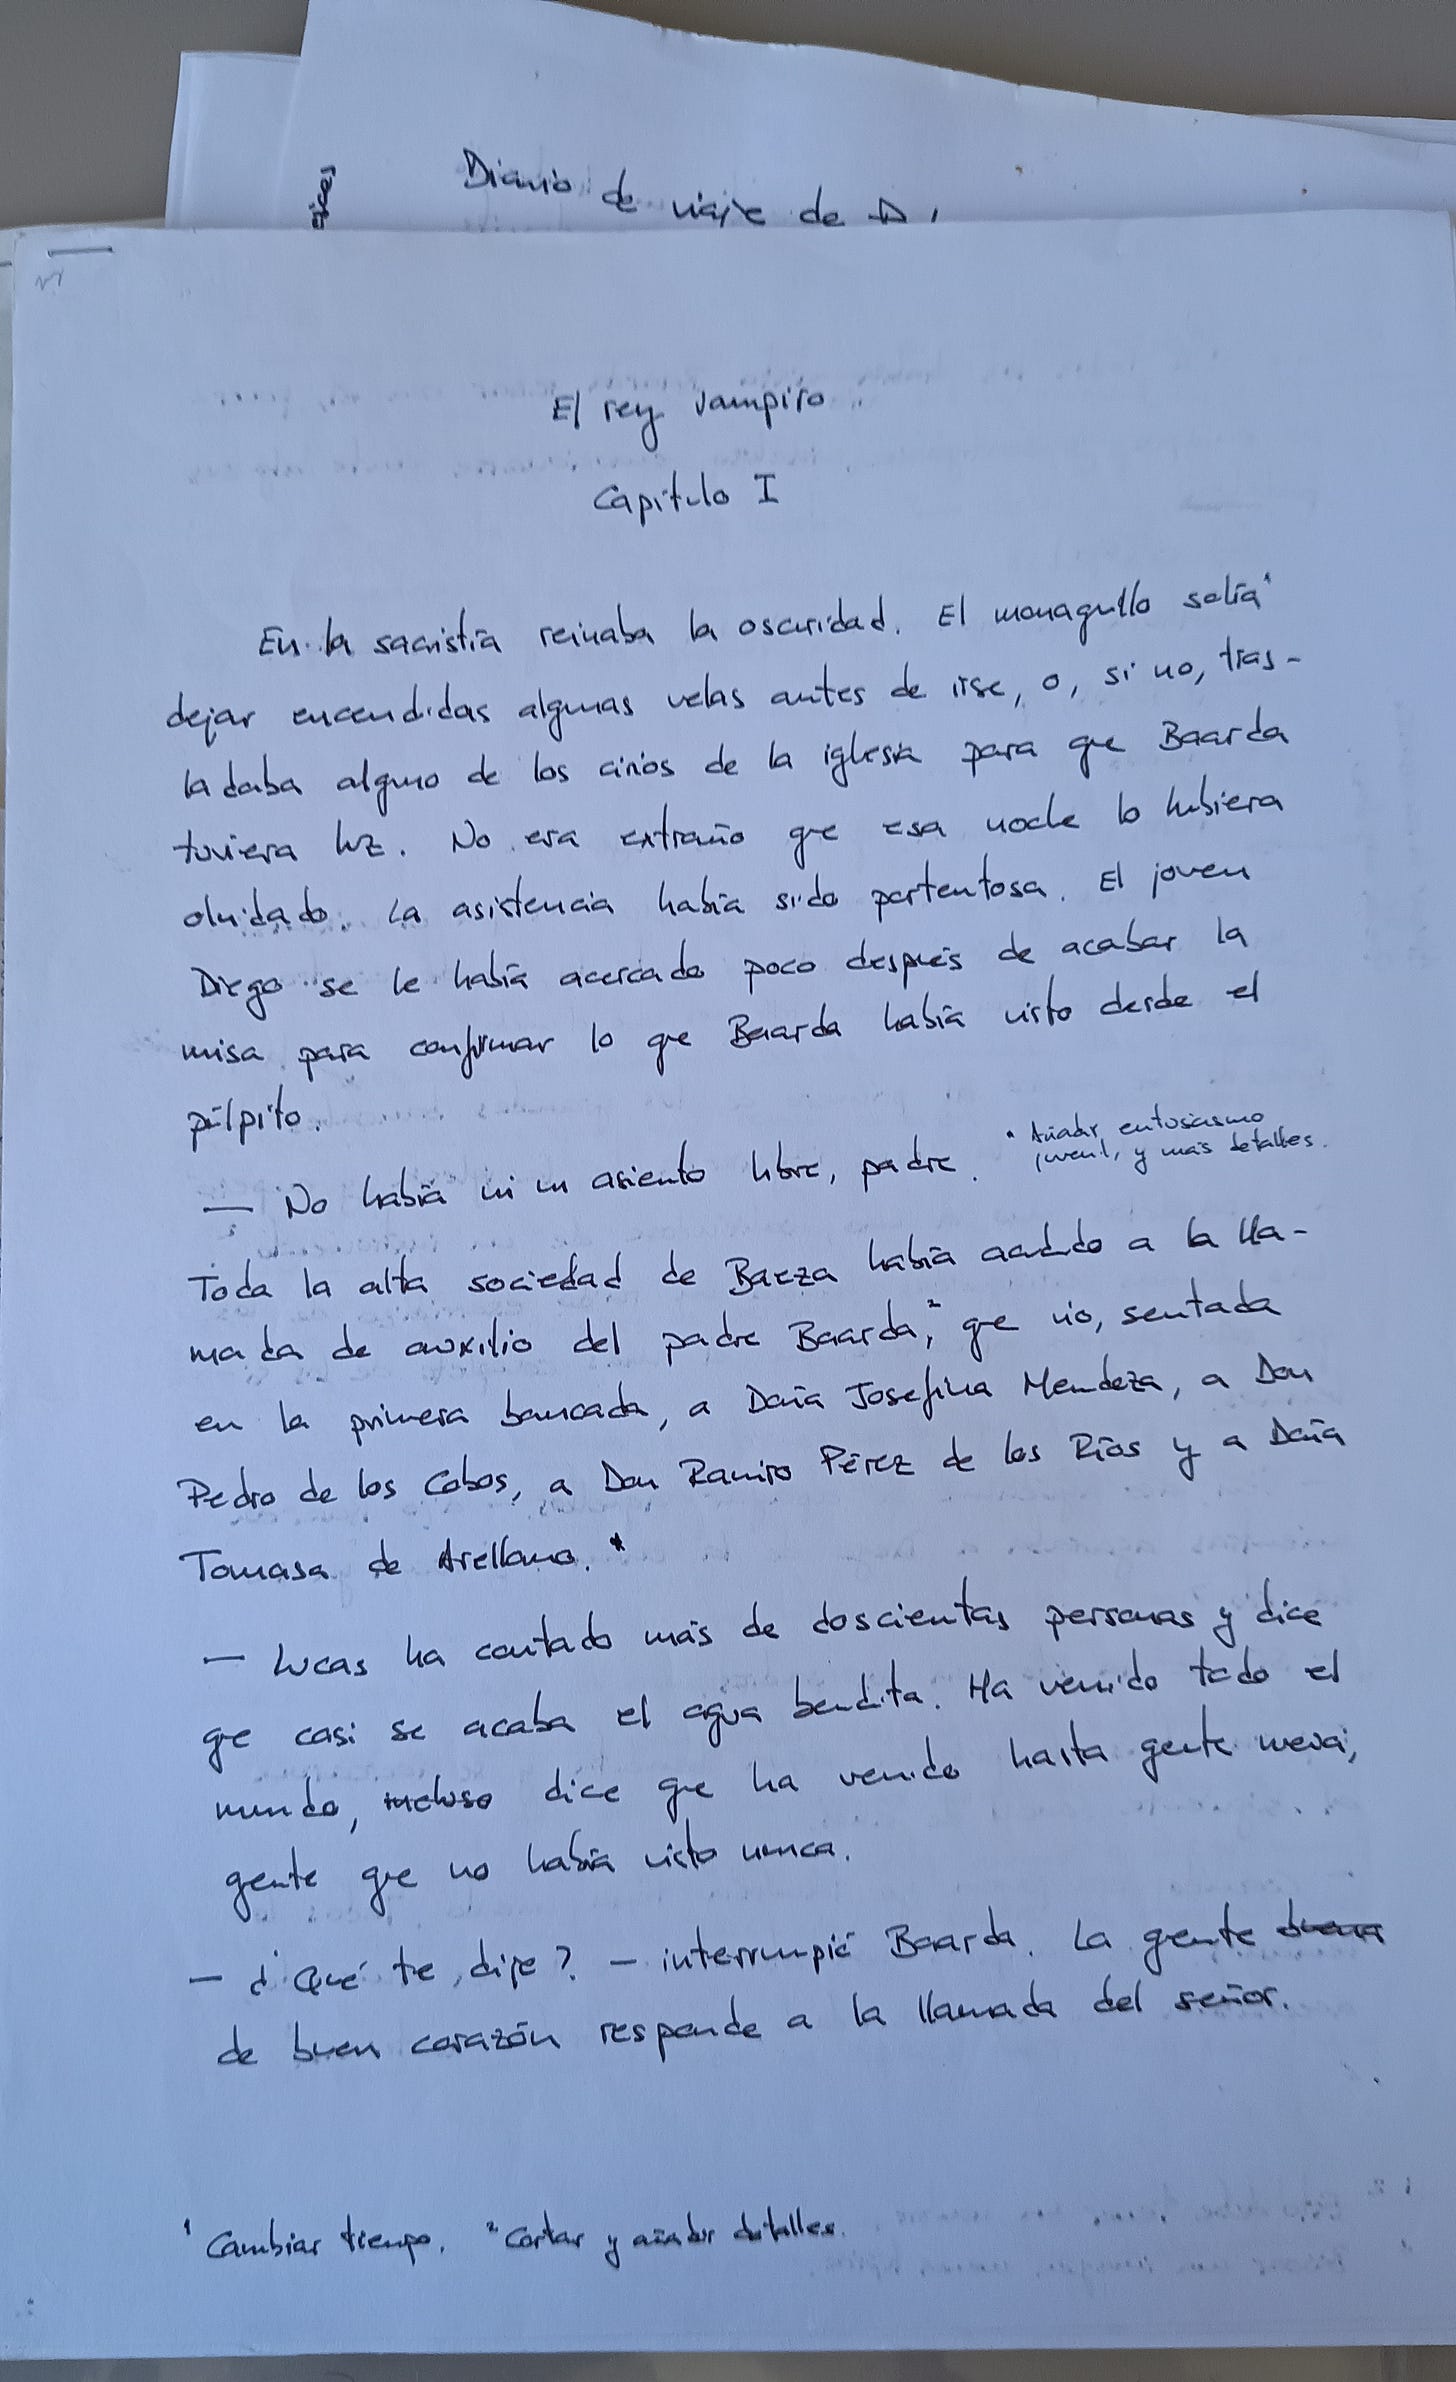 Diario de viaje de D
El rey vampiro
Capítulo I
En la sacristía reinaba la oscuridad. El monaguillo solía¹
dejar encendidas algunas velas antes de irse, o, si no, tras-
ladaba alguno de los cirios de la iglesia para que Baarda
tuviera luz. No era extraño que esa noche lo hubiera
olvidado. La asistencia había sido portentosa. El joven
Diego se le había acercado poco después de acabar la
misa para confirmar lo que Baarda había visto desde el
púlpito.
— No había ni un asiento libre, padre.
* Añadir entusiasmo
juvenil, y más detalles.
Toda la alta sociedad de Baeza había acudido a la lla-
mada de auxilio del padre Baarda,² que vio, sentada
en la primera bancada, a Doña Josefina Mendoza, a Don
Pedro de los Cobos, a Don Ramiro Pérez de los Ríos y a Doña
Tomasa de Arellano.*
— Lucas ha contado más de doscientas personas y dice
que casi se acaba el agua bendita. Ha venido todo el
mundo, incluso dice que ha venido hasta gente nueva,
gente que no había visto nunca.
— ¿Qué te dije? — interrumpió Baarda. La gente buena
de buen corazón responde a la llamada del señor.
¹ Cambiar tiempo. ² Cortar y añadir detalles.